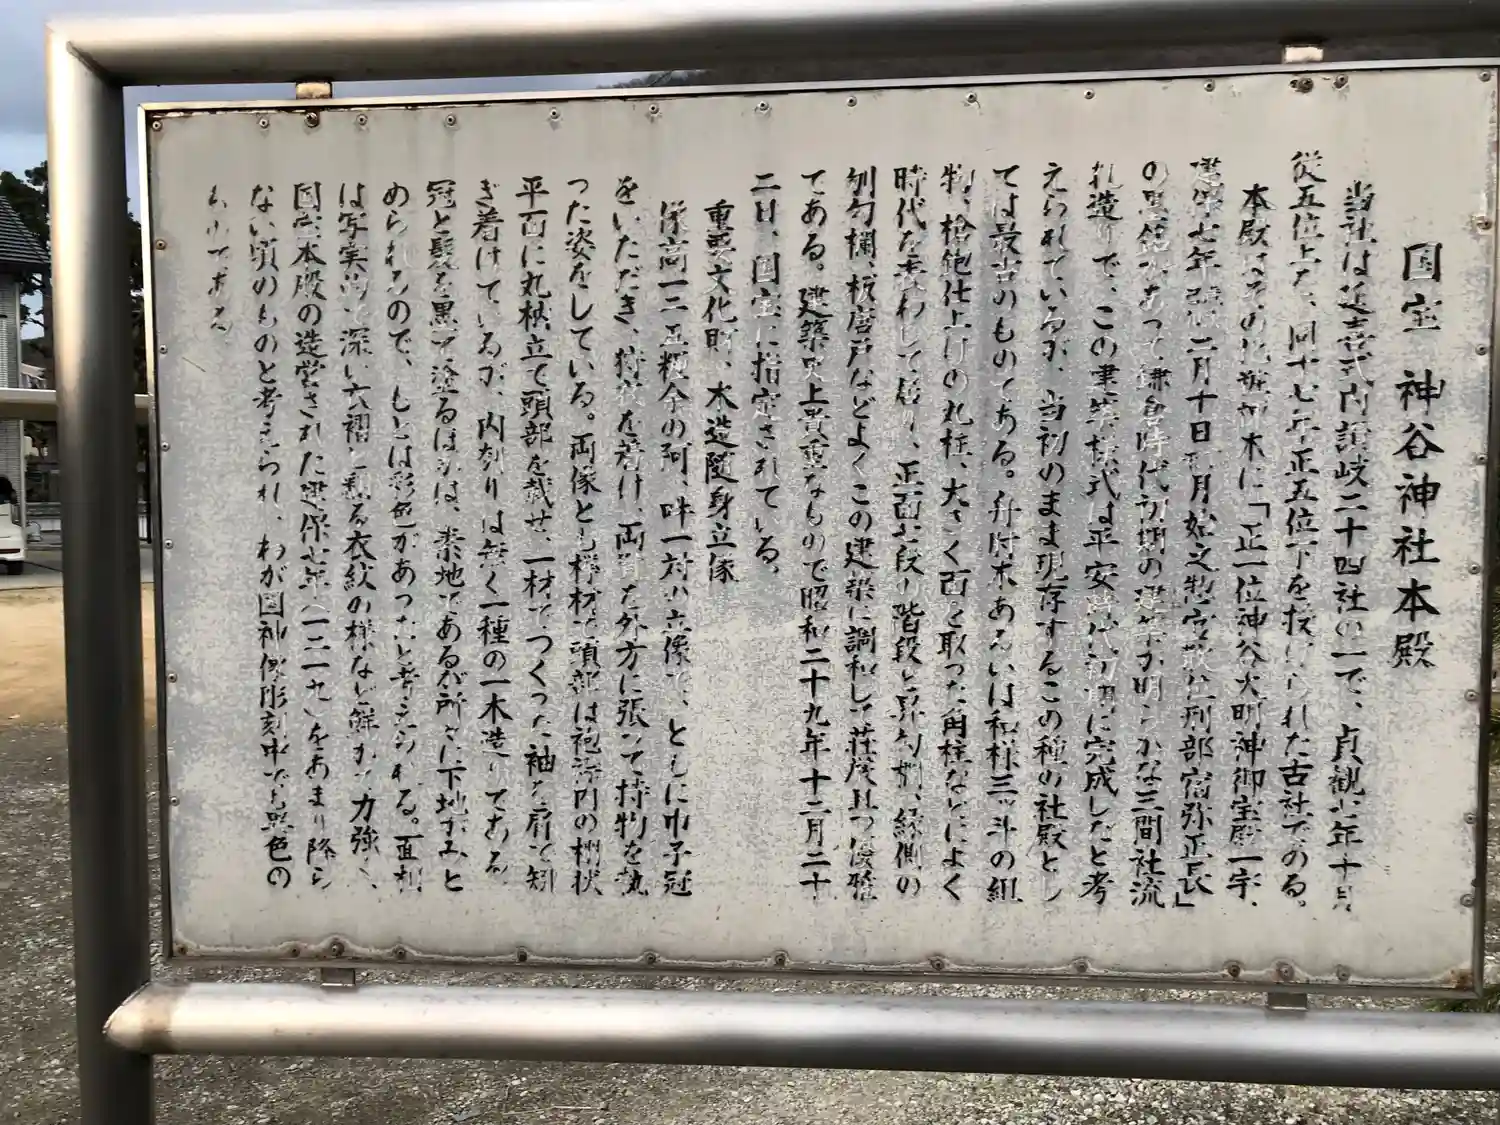 国宝 神谷神社本殿
当社は延喜式内讃岐二十四社の一で、貞観七年十月
従五位上を、同十七年正五位下を授けられた古社である。
本殿はその化粧棟木に「正一位神谷大明神御宝殿一宇、
建保七年歳二月十日 月始之惣官散位刑部宿弥正長」
の墨銘があって鎌倉時代初期の建築が明らかな三間社流
れ造りで、この建築様式は平安時代初期に完成したと考
えられているが、当初のまま現存するこの種の社殿とし
ては最古のものである。舟肘木あるいは和様三ッ斗の組
物、槍鉋仕上げの丸柱、大きく面を取った角柱などによく
時代を表わして居り、正面七段の階段と昇勾欄、縁側の
刎勾欄、板唐戸などよくこの建築に調和して荘厳且つ優雅
である。建築史上貴重なもので昭和二十九年十二月二十
二日、国宝に指定されている。
重要文化財、木造随身立像
像高一二五糎余の阿、吽一対の立像で、ともに巾子冠
をいただき、狩衣を着け、両臂を外方に張って持物を執
った姿をしている。両像とも樟材で頭部は袍 内の棚状
平面に丸枘立て頭部を載せ、一材でつくった袖を肩で矧
ぎ着けているが、内刳りは無く一種の一木造りである。
冠と髪を黒で塗るほかは、素地であるが所々に下地がみと
められるので、もとは彩色があったと考えられる。面相
は写実的で深い衣褶と翻る衣紋の様など鮮かで力強く、
国宝本殿の造営された建保七年(一二一九)をあまり降ら
ない頃のものと考えられ、わが国神像彫刻中でも異色の
ものである